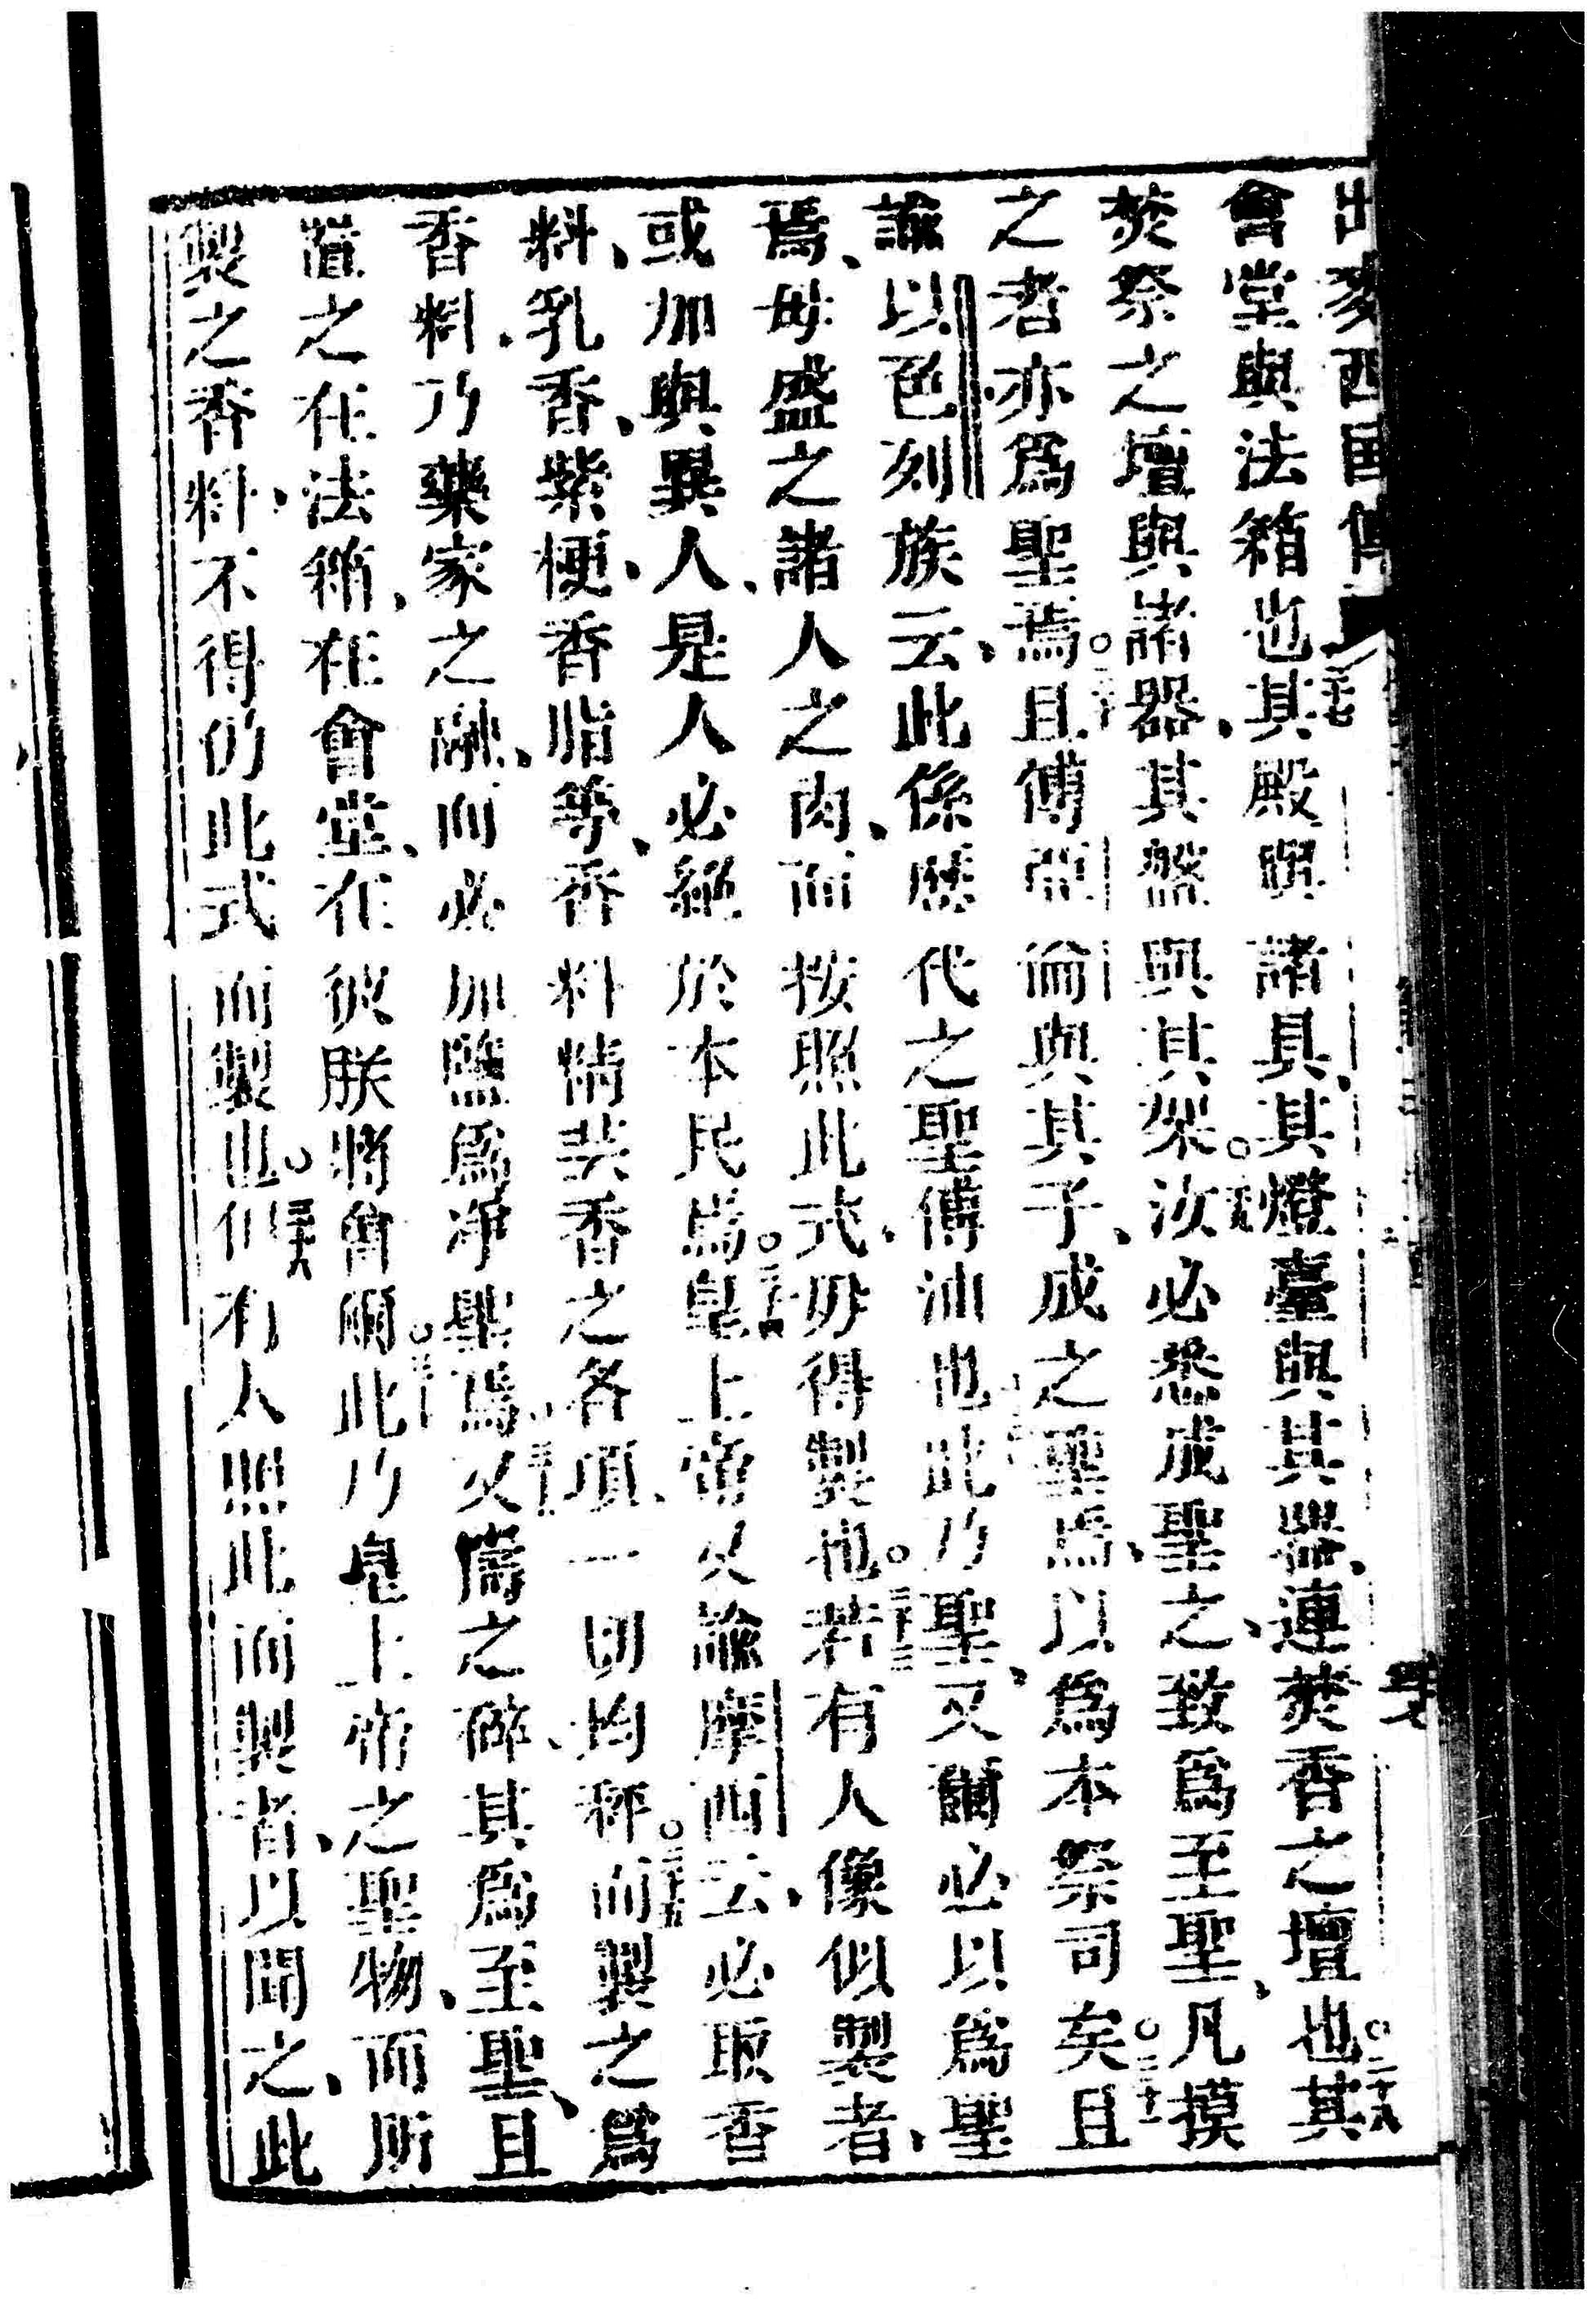 出麥西國傳
會堂與法箱也○二十七其殿與諸具、其燈臺與其器、連焚香之壇也○二十八其
焚祭之壇與諸器、其盤與其架○二十九汝必悉成聖之、致爲至聖、凡摸
之者亦爲聖焉○三十且傅亞倫與其子、成之聖焉、以爲本祭司矣○三十一且
諭以色列族云、此係歷代之聖傅油也○三十二此乃聖、又爾必以爲聖
焉、毋盛之諸人之肉、而按照此式、毋得製也○三十三若有人像似製者、
或加與異人、是人必絕於本民焉○三十四皇上帝又諭摩西云、必取香
料、乳香、紫梗、香脂等、香料情共香之各項、一切均秤○三十五而製之爲
香料、乃藥家之融、而必加鹽爲凈聖焉、三十六又擣之碎、其爲至聖、且
置之在法箱、在會堂、在彼朕將會爾○三十七此乃皇上帝之聖物、而所
製之香料、不得仍此式而製也○三十八何有人照此而製者、以聞之、此